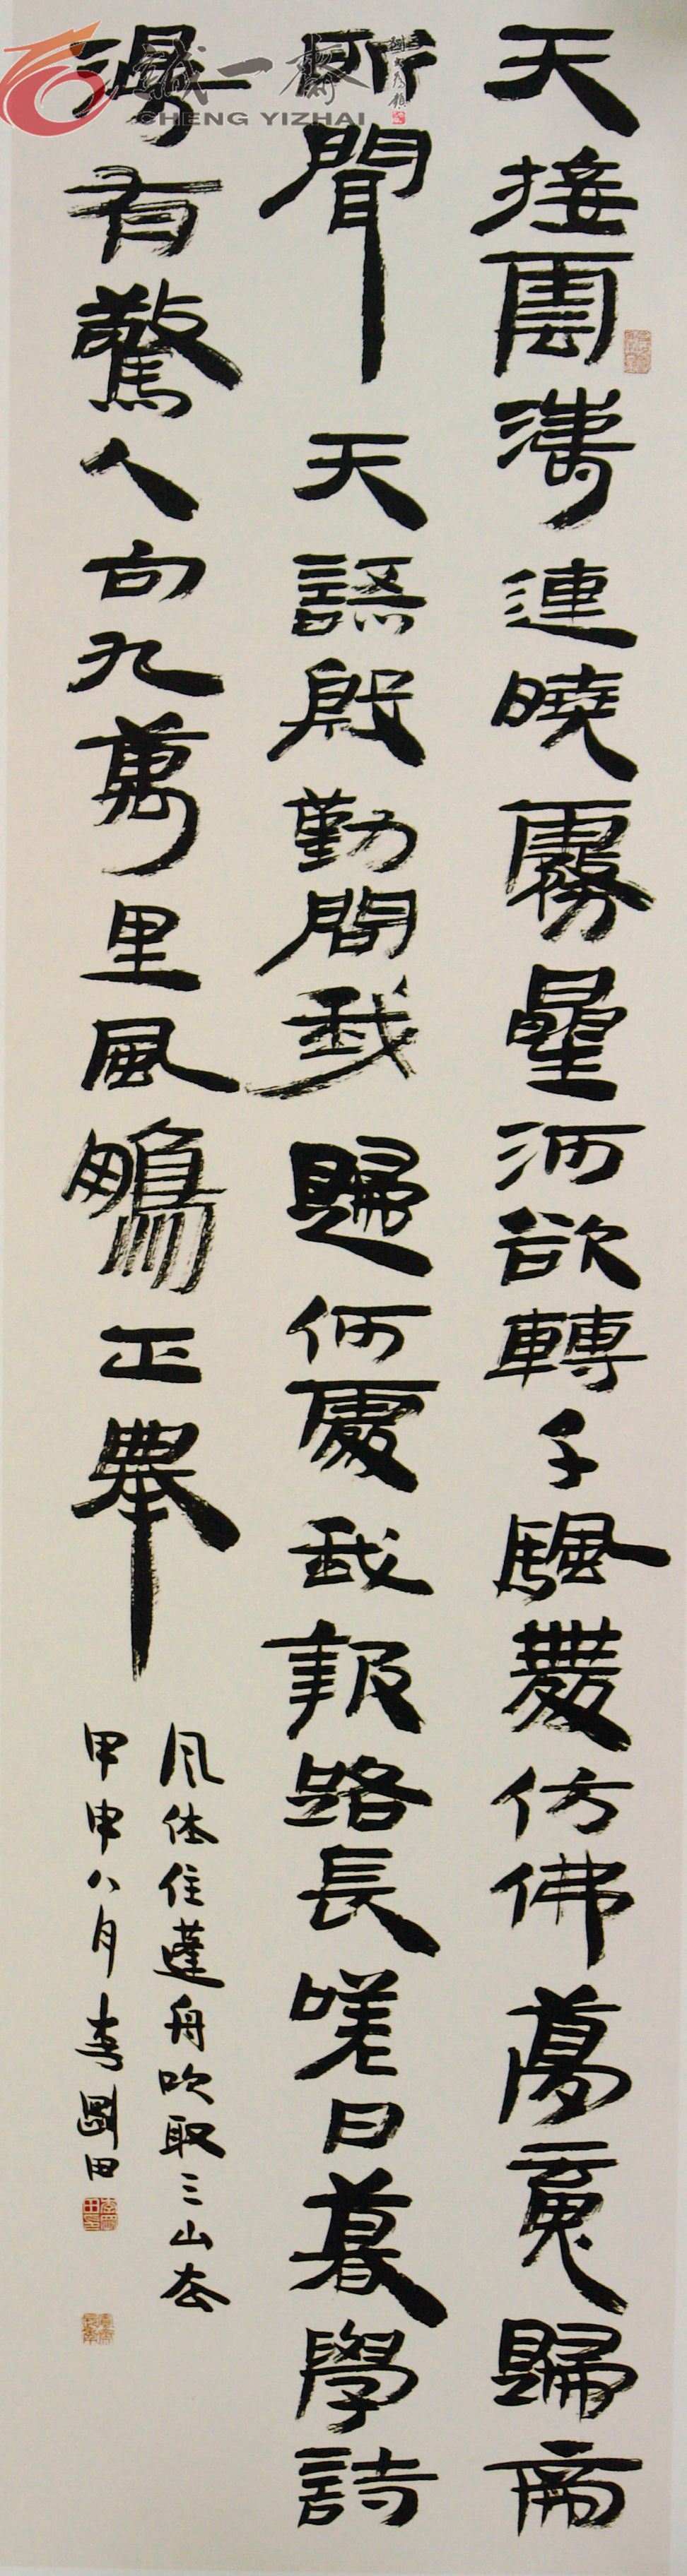 天接雲濤連曉霧曐河欲轉千颿舞仿佛夢魂歸帝
所聞天語殷勤問我歸何處我報路長嗟日暮學詩
漫有驚人句九萬里風鵬正舉
风休住蓬舟吹取三山去
甲申八月李剛田
誠一齋
CHENG YIZHAI